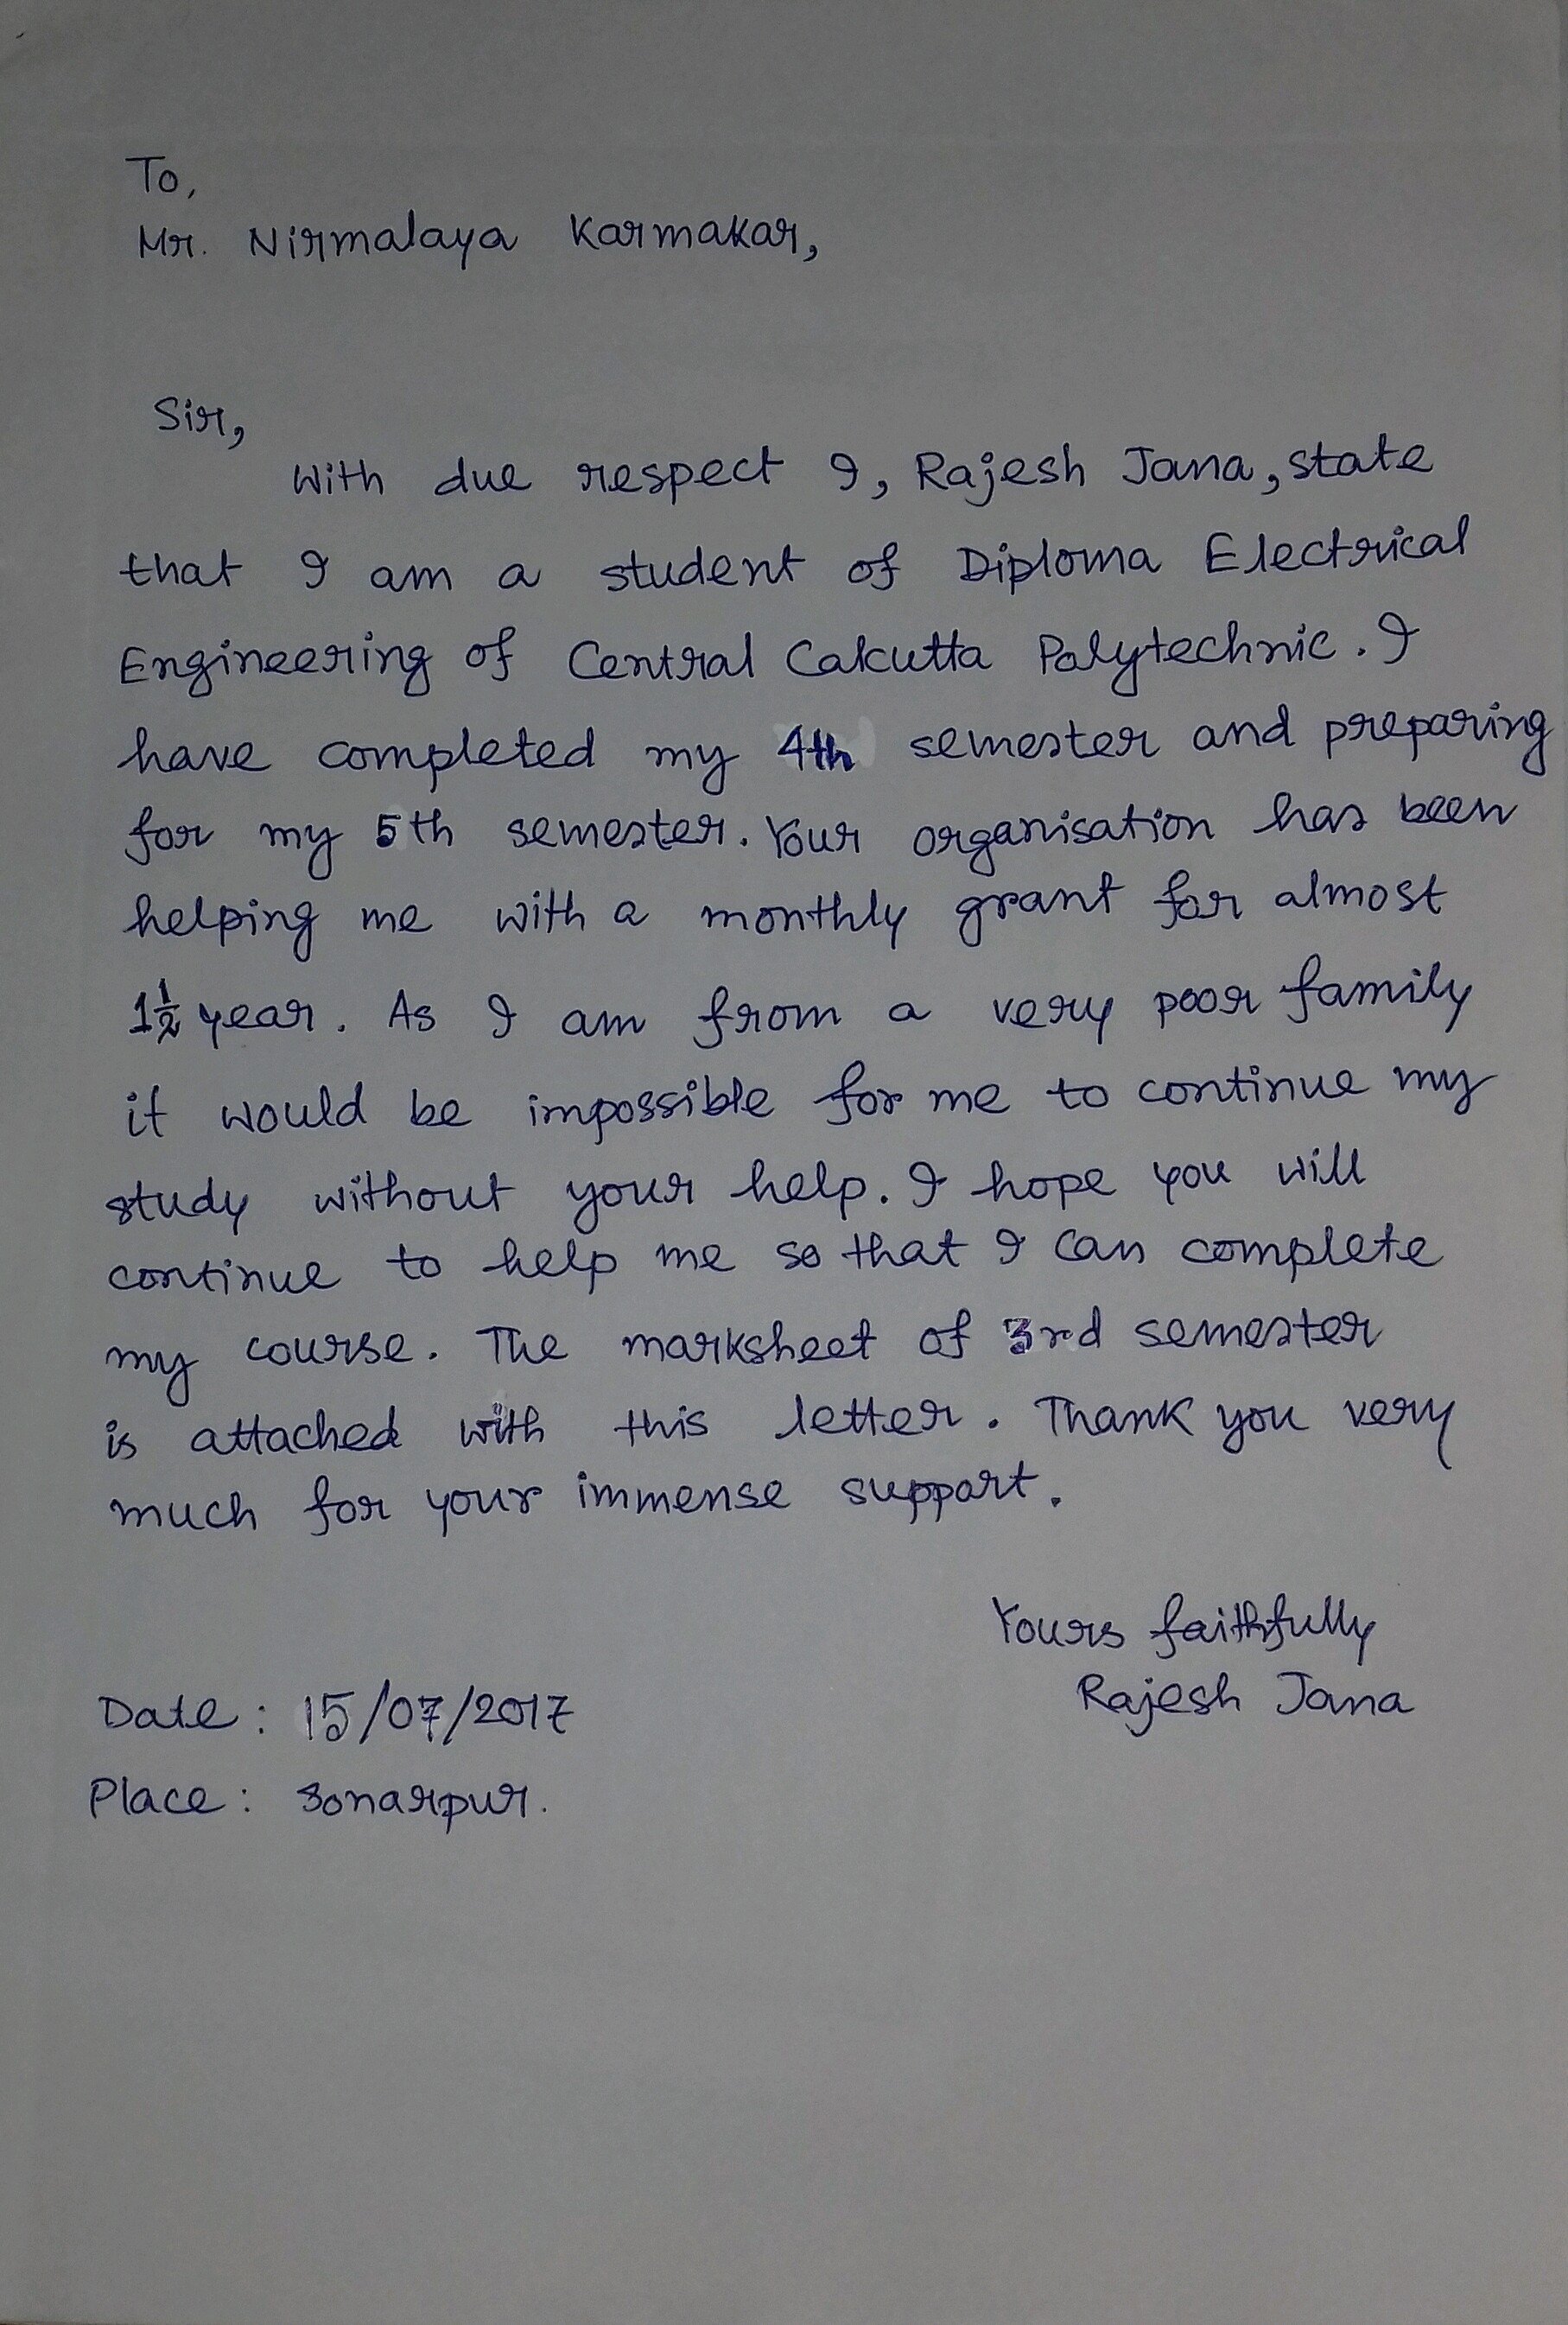 To,
Mr. Nirmalaya Karmakar,
Sir,
With due respect I, Rajesh Jana, state
that I am a student of Diploma Electrical
Engineering of Central Calcutta Polytechnic. I
have completed my 4th semester and preparing
for my 5th semester. Your organisation has been
helping me with a monthly grant for almost
1½ year. As I am from a very poor family
it would be impossible for me to continue my
study without your help. I hope you will
continue to help me so that I can complete
my course. The marksheet of 3rd semester
is attached with this letter. Thank you very
much for your immense support.
Yours faithfully
Rajesh Jana
Date: 15/07/2017
Place: Sonarpur.